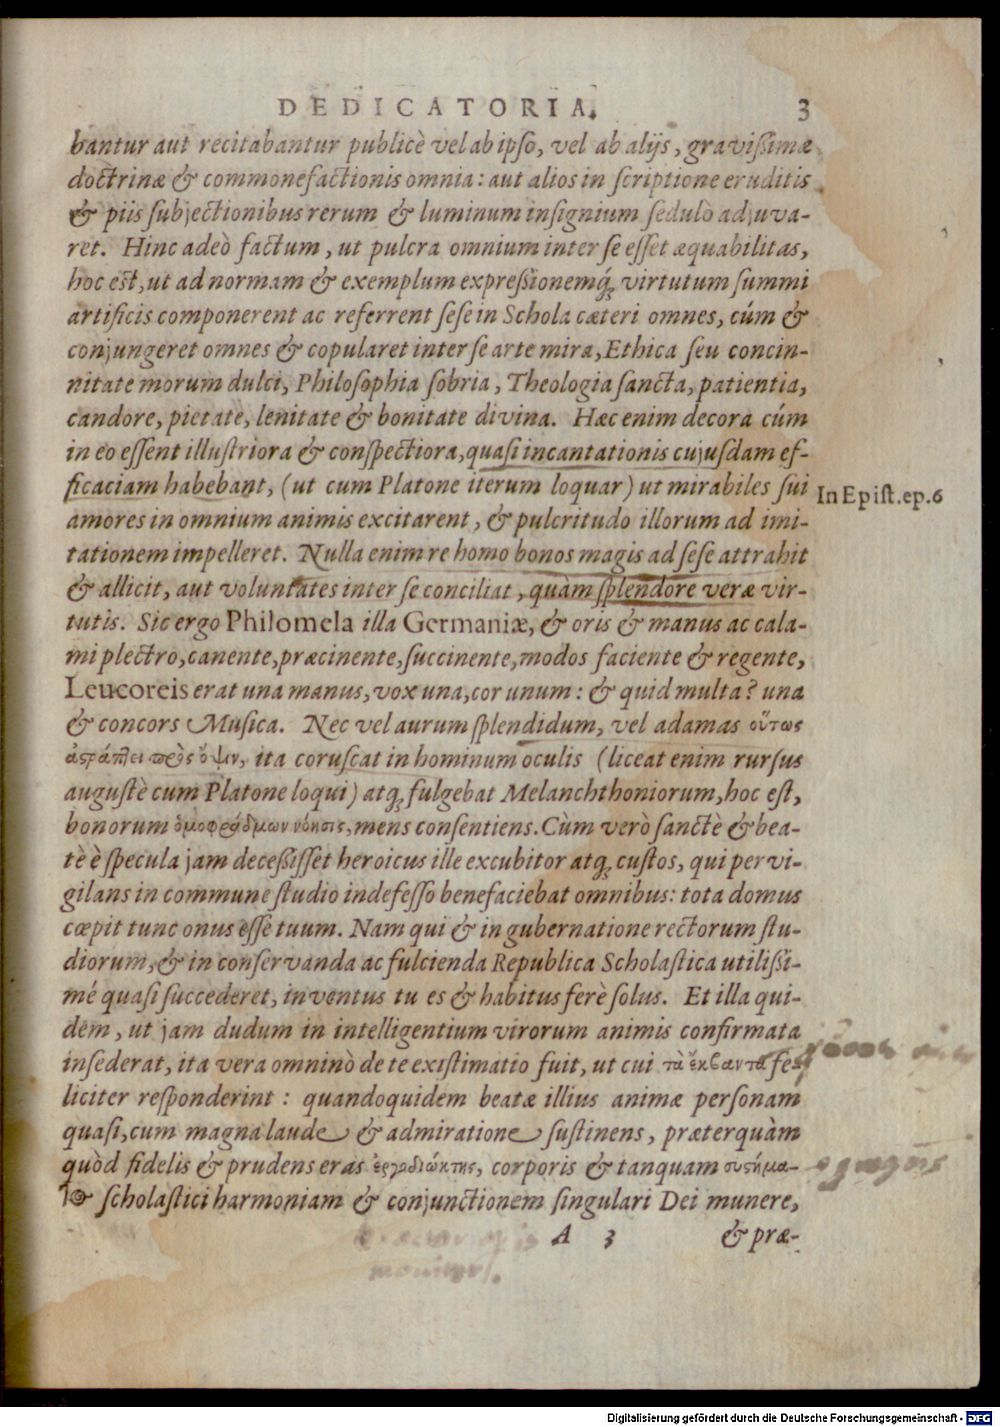 DEDICATORIA. 3
bantur aut recitabantur publicè vel ab ipso, vel ab alijs, gravißimæ
doctrinæ & commonefactionis omnia: aut alios in scriptione eruditis
& piis subjectionibus rerum & luminum insignium sedulò adjuva-
ret. Hinc adeò factum, ut pulcra omnium inter se esset æquabilitas,
hoc est, ut ad normam & exemplum expreßionemq́; virtutum summi
artificis componerent ac referrent sese in Schola cæteri omnes, cúm &
conjungeret omnes & copularet inter se arte mira, Ethica seu concin-
nitate morum dulci, Philosophia sobria, Theologia sancta, patientia,
candore, pietate, lenitate & bonitate divina. Hæc enim decora cúm
in eo essent illustriora & conspectiora, quasi incantationis cujusdam ef-
ficaciam habebant, (ut cum Platone iterum loquar) ut mirabiles sui
In Epist. ep. 6
amores in omnium animis excitarent, & pulcritudo illorum ad imi-
tationem impelleret. Nulla enim re homo bonos magis ad sese attrahit
& allicit, aut voluntates inter se conciliat, quàm splendore veræ vir-
tutis. Sic ergo Philomela illa Germaniæ, & oris & manus ac cala-
mi plectro, canente, præcinente, succinente, modos faciente & regente,
Leucoreis erat una manus, vox una, cor unum: & quid multa? una
& concors Musica. Nec vel aurum splendidum, vel adamas οὕτως
ἀστράπτει πρὸς ὄψιν, ita coruscat in hominum oculis (liceat enim rursus
augustè cum Platone loqui) atq; fulgebat Melanchthoniorum, hoc est,
bonorum ὁμοφραδμων νόησις, mens consentiens. Cùm verò sanctè & bea-
tè è specula jam deceßisset heroicus ille excubitor atq; custos, qui per vi-
gilans in commune studio indefesso benefaciebat omnibus: tota domus
cœpit tunc onus esse tuum. Nam qui & in gubernatione rectorum stu-
diorum, & in conservanda ac fulcienda Republica Scholastica utilißi-
mé quasi succederet, inventus tu es & habitus ferè solus. Et illa qui-
dem, ut jam dudum in intelligentium virorum animis confirmata
insederat, ita vera omninò de te existimatio fuit, ut cui τὰ ἐκβαντα fe-
liciter responderint: quandoquidem beatæ illius animæ personam
quasi, cum magna laude & admiratione sustinens, præterquàm
quòd fidelis & prudens eras ἐργοδιώκτης, corporis & tanquam συστήμα-
τος scholastici harmoniam & conjunctionem singulari Dei munere,
A 3 & præ-
Digitalisierung gefördert durch die Deutsche Forschungsgemeinschaft - DFG